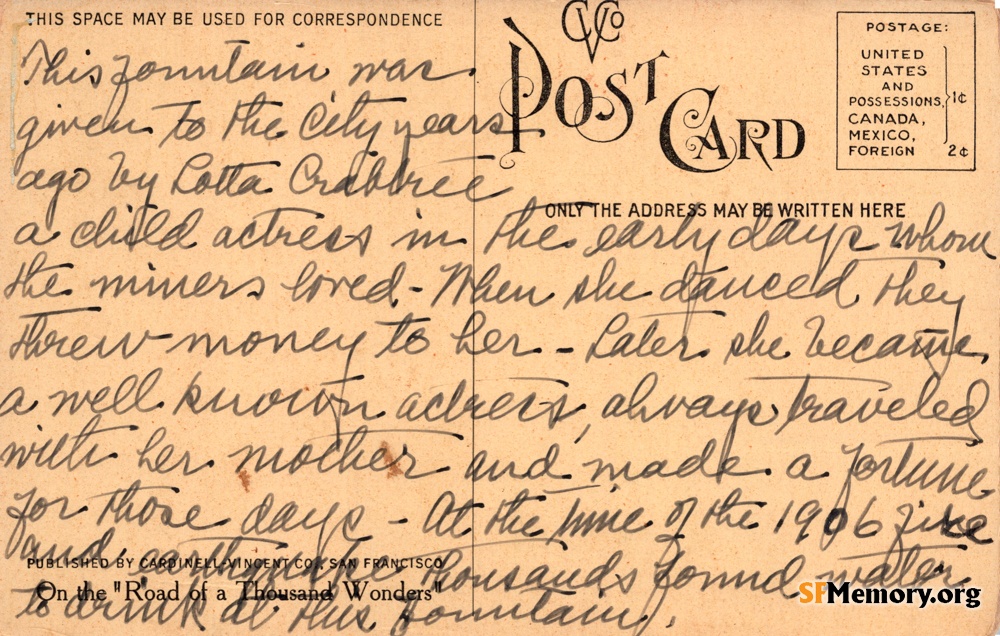 THIS SPACE MAY BE USED FOR CORRESPONDENCE
CVCo
POST CARD
POSTAGE:
UNITED
STATES
AND
POSSESSIONS,
CANADA,
MEXICO,
1¢
FOREIGN 2¢
ONLY THE ADDRESS MAY BE WRITTEN HERE
This fountain was
given to the City years
ago by Lotta Crabtree
a child actress in the early days whom
the miners loved - When she danced they
threw money to her - Later she became
a well known actress, always traveled
with her mother and made a fortune
for those days - At the time of the 1906 fire
and earthquake thousands found water
to drink at this fountain.
PUBLISHED BY CARDINELL-VINCENT CO., SAN FRANCISCO
On the "Road of a Thousand Wonders"
SFMemory.org